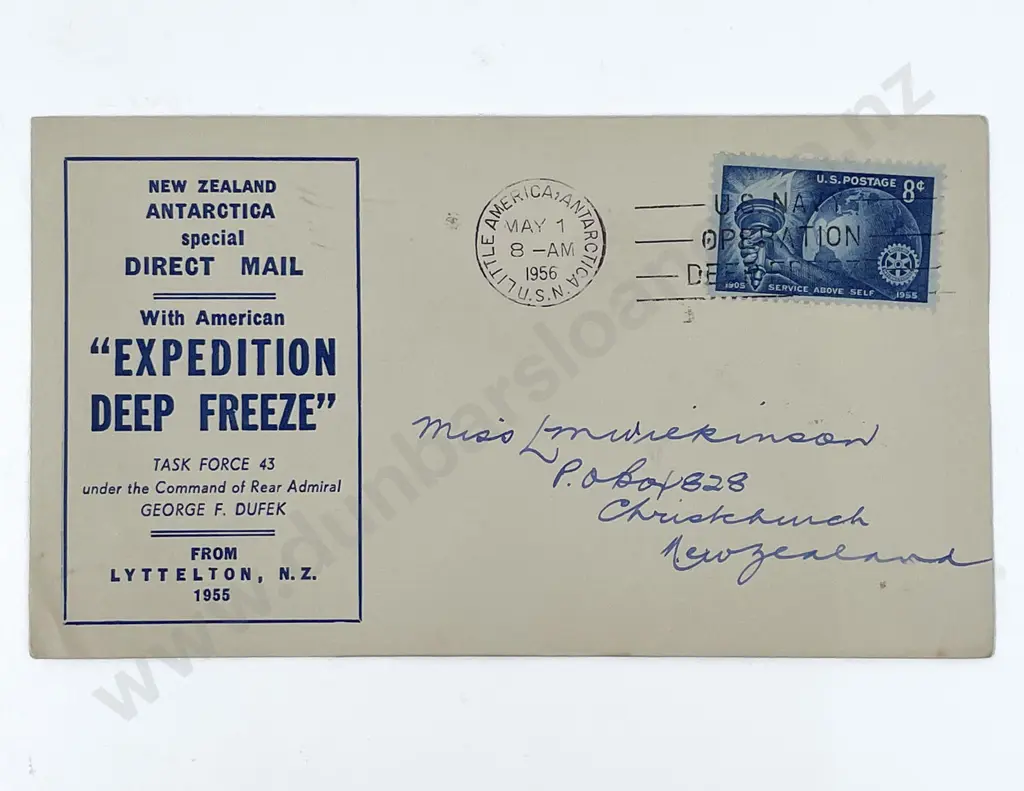 NEW ZEALAND
ANTARCTICA
special
DIRECT MAIL
With American
“EXPEDITION
DEEP FREEZE”
TASK FORCE 43
under the Command of Rear Admiral
GEORGE F. DUFEK
FROM
LYTTELTON, N.Z.
1955
LITTLE AMERICA, ANTARCTICA
U.S.N.
MAY 1
8 -AM
1956
U.S. POSTAGE 8¢
U.S. NAVY
OPERATION
DEEP FREEZE
1905 SERVICE ABOVE SELF 1955
Miss L M Wilkinson
P.O Box 828
Christchurch
New Zealand
www.dunbarsloane.co.nz